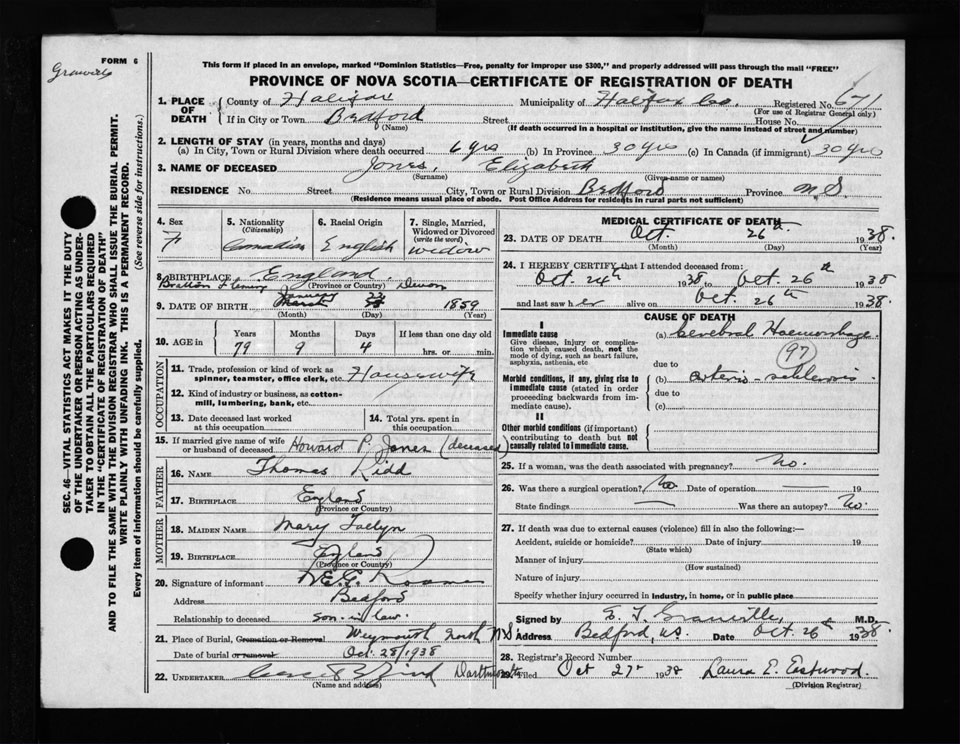 FORM 6
Granville
This form if placed in an envelope, marked "Dominion Statistics—Free, penalty for improper use $300," and properly addressed will pass through the mail "FREE"
PROVINCE OF NOVA SCOTIA—CERTIFICATE OF REGISTRATION OF DEATH
1. PLACE OF DEATH County of Halifax Municipality of Halifax Co. Registered No. 671
(For use of Registrar General only)
If in City or Town Bedford Street House No.
(Name) (If death occurred in a hospital or institution, give the name instead of street and number)
2. LENGTH OF STAY (in years, months and days)
(a) In City, Town or Rural Division where death occurred 6 yrs (b) In Province 30 yrs (c) In Canada (if immigrant) 30 yrs
3. NAME OF DECEASED Jones, Elizabeth
(Surname) (Given name or names)
RESIDENCE No. Street City, Town or Rural Division Bedford Province N.S.
(Residence means usual place of abode. Post Office Address for residents in rural parts not sufficient)
SEC. 46—VITAL STATISTICS ACT MAKES IT THE DUTY
OF THE UNDERTAKER OR PERSON ACTING AS UNDER-
TAKER TO OBTAIN ALL THE PARTICULARS REQUIRED
IN THE "CERTIFICATE OF REGISTRATION OF DEATH"
AND TO FILE THE SAME WITH THE DIVISION REGISTRAR WHO SHALL ISSUE THE BURIAL PERMIT.
WRITE PLAINLY WITH UNFADING INK. THIS IS A PERMANENT RECORD.
Every item of information should be carefully supplied. (See reverse side for instructions.)
4. Sex
F
5. Nationality
(Citizenship)
Canadian
6. Racial Origin
English
7. Single, Married,
Widowed or Divorced
(write the word)
Widow
8. BIRTHPLACE England
(Province or Country)
Bratton Fleming Devon
9. DATE OF BIRTH January 22 1859
March
(Month) (Day) (Year)
10. AGE in
Years Months Days If less than one day old
79 9 4 hrs. or min.
OCCUPATION
11. Trade, profession or kind of work as
spinner, teamster, office clerk, etc. Housewife
12. Kind of industry or business, as cotton-
mill, lumbering, bank, etc.
13. Date deceased last worked
at this occupation
14. Total yrs. spent in
this occupation
15. If married give name of wife
or husband of deceased Howard P. Jones (deceased)
FATHER
16. NAME Thomas Kidd
17. BIRTHPLACE England
(Province or Country)
MOTHER
18. MAIDEN NAME Mary
19. BIRTHPLACE England
(Province or Country)
20. Signature of informant
Address Bedford
Relationship to deceased Son-in-law
21. Place of Burial, Cremation or Removal Weymouth North N.S.
Date of burial or removal Oct. 28/1938
22. UNDERTAKER Dartmouth
(Name and address)
MEDICAL CERTIFICATE OF DEATH
23. DATE OF DEATH Oct. 26th 1938.
(Month) (Day) (Year)
24. I HEREBY CERTIFY that I attended deceased from:
Oct. 24th 1938 to Oct. 26th 1938
and last saw her alive on Oct. 26th 1938.
CAUSE OF DEATH
I
Immediate cause
Give disease, injury or complica-
tion which caused death, not the
mode of dying, such as heart failure,
asphyxia, asthenia, etc
(a) Cerebral Haemorrhage
97
due to
Morbid conditions, if any, giving rise to
immediate cause (stated in order
proceeding backwards from im-
mediate cause).
(b) arterio-sclerosis
due to
(c)
II
Other morbid conditions (if important)
contributing to death but not
causally related to immediate cause.
25. If a woman, was the death associated with pregnancy? No.
26. Was there a surgical operation? No Date of operation 19
State findings Was there an autopsy? No.
27. If death was due to external causes (violence) fill in also the following:—
Accident, suicide or homicide? Date of injury 19
(State which)
Manner of injury
(How sustained)
Nature of injury
Specify whether injury occurred in industry, in home, or in public place
Signed by E. J. Granville M.D.
Address Bedford, N.S. Date Oct. 26th 1938.
28. Registrar's Record Number
29. Filed Oct 27th 1938 Laura E. Eastwood.
(Division Registrar)